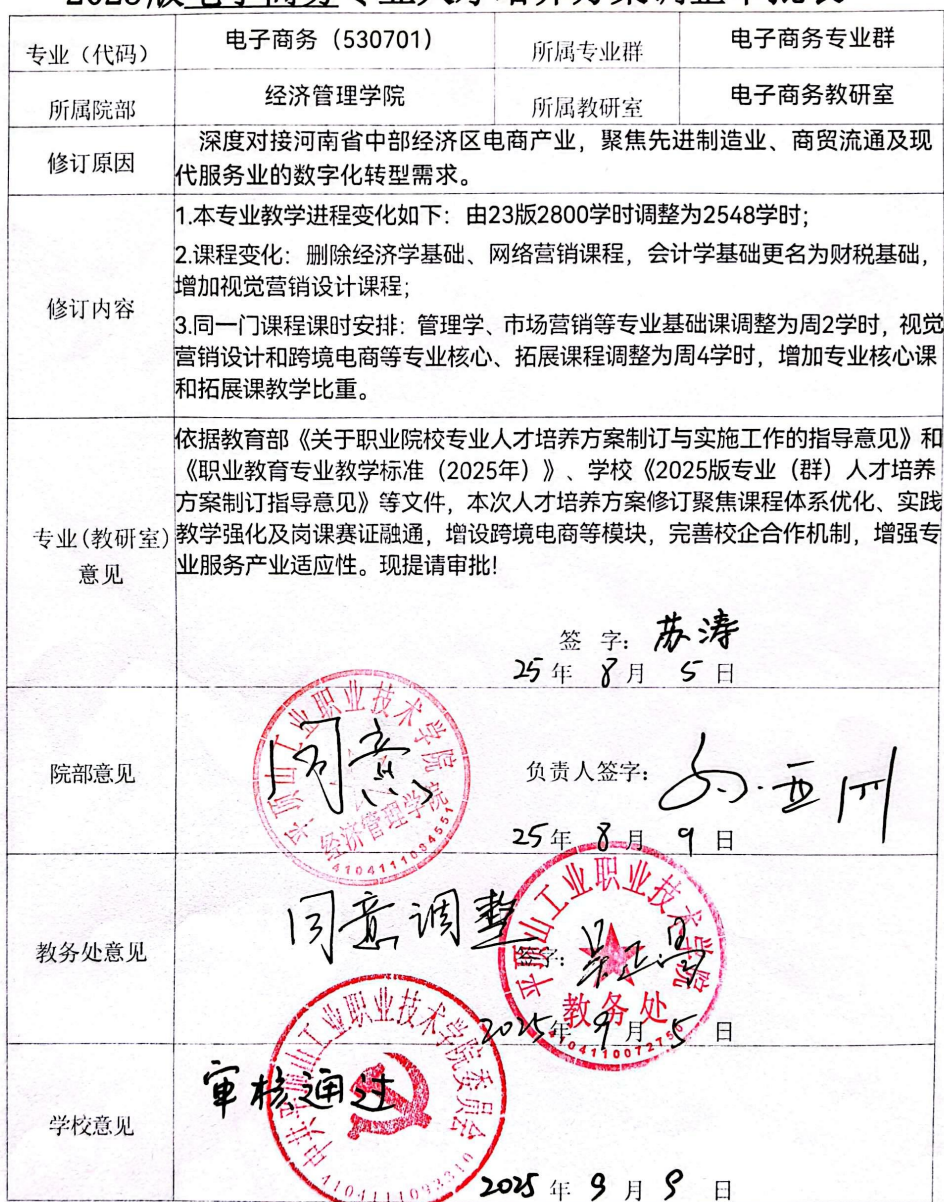 2025版电子商务专业人才培养方案调整审批表
专业（代码） 电子商务（530701） 所属专业群 电子商务专业群
所属院部 经济管理学院 所属教研室 电子商务教研室
修订原因
深度对接河南省中部经济区电商产业，聚焦先进制造业、商贸流通及现
代服务业的数字化转型需求。
修订内容
1.本专业教学进程变化如下：由23版2800学时调整为2548学时；
2.课程变化：删除经济学基础、网络营销课程，会计学基础更名为财税基础，
增加视觉营销设计课程；
3.同一门课程课时安排：管理学、市场营销等专业基础课调整为周2学时，视觉
营销设计和跨境电商等专业核心、拓展课程调整为周4学时，增加专业核心课
和拓展课教学比重。
专业(教研室)
意见
依据教育部《关于职业院校专业人才培养方案制订与实施工作的指导意见》和
《职业教育专业教学标准（2025年）》、学校《2025版专业（群）人才培养
方案制订指导意见》等文件，本次人才培养方案修订聚焦课程体系优化、实践
教学强化及岗课赛证融通，增设跨境电商等模块，完善校企合作机制，增强专
业服务产业适应性。现提请审批!
签 字：苏涛
25年 8月 5日
院部意见
同意
平顶山工业职业技术学院
经济管理学院
4104111034551
负责人签字：
25年 8月 9日
教务处意见
同意调整
签字：
平顶山工业职业技术学院
教务处
2025年 9月 5日
学校意见
审核通过
中共平顶山工业职业技术学院委员会
2025年 9月 9日